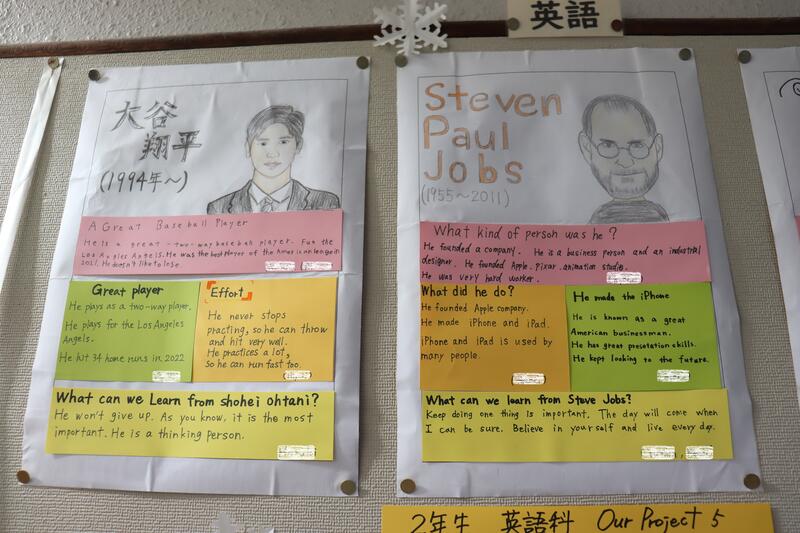 英語
大谷
翔平
(1994年～)
A Great Baseball Player
He is a great two-way baseball player.
Los Angeles Angels. He was the best player of the American league in
2021. He doesn't like to lose.
Great player
He plays as a two-way player.
He plays for the Los Angeles
Angels.
He hit 34 home runs in 2022
Effort
He never stops
practing, so he can throw
and hit very well.
He practices a lot,
so he can run fast too.
What can we Learn from shohei ohtani?
He won't give up. As you know, it is the most
important. He is a thinking person.
Steven
Paul
Jobs
(1955～2011)
What kind of person was he?
He founded a company. He is a business person and an industrial
designer. He founded Apple. Pixar animation studio.
He was very hard worker.
What did he do?
He founded Apple company.
He made iPhone and iPad.
iPhone and iPad is used by
many people.
He made the iPhone
He is known as a great
American businessman.
He has great presetation skills.
He kept looking to the future.
What can we learn from Steve Jobs?
Keep doing one thing is important. The day will come when
I can be sure. Believe in yourself and live every day.
2年生 英語科 Our Project 5